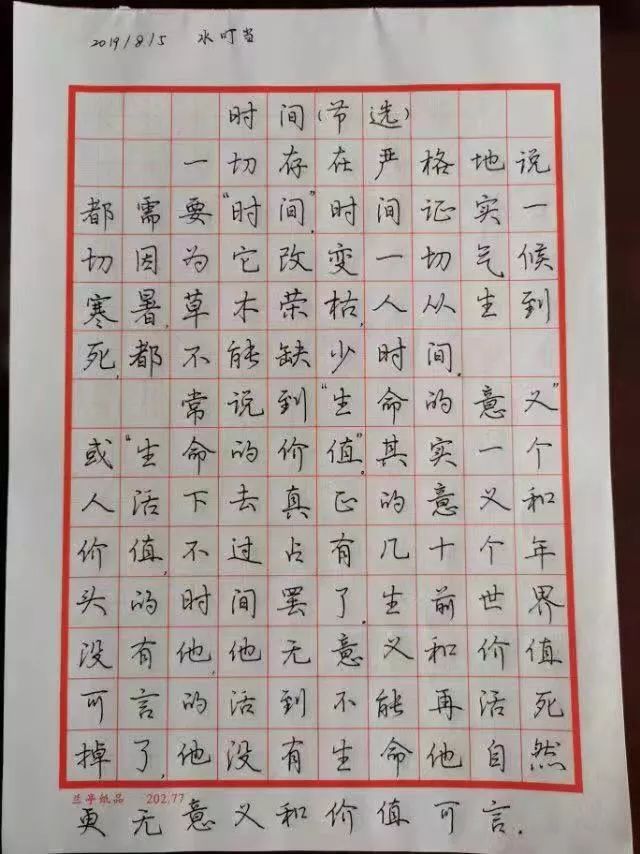 2019/8/15 水叮当
时间(节选)
一切存在严格地说
都需要“时间”.时间证实一
切因为它改变一切气候
寒暑,草木荣枯,人从生到
死,都不能缺少时间.
常说到“生命的意义”
或“生命的价值”.其实一个
人活下去真正的意义和
价值,不过占有几十个年
头的时间罢了.生前世界
没有他,他无意义和价值
可言的活到不能再活死
掉了,他没有生命他自然
兰亭纸品 202.77
更无意义和价值可言.